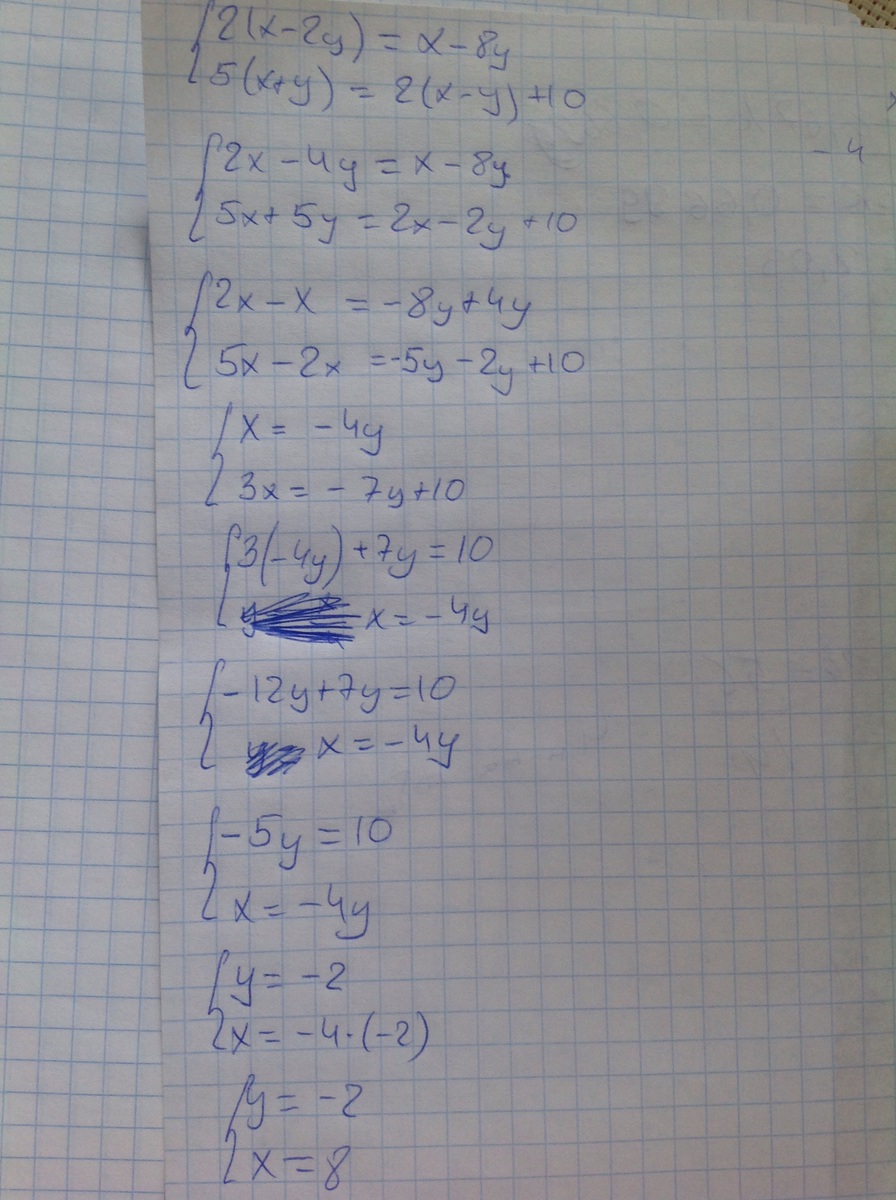 2(x-2y) = x-8y
5(x+y) = 2(x-y)+10
2x-4y = x-8y
5x+5y = 2x-2y+10
2x-x = -8y+4y
5x-2x = -5y-2y+10
x = -4y
3x = -7y+10
3(-4y)+7y = 10
x = -4y
-12y+7y = 10
x = -4y
-5y = 10
x = -4y
y = -2
x = -4·(-2)
y = -2
x = 8
-4